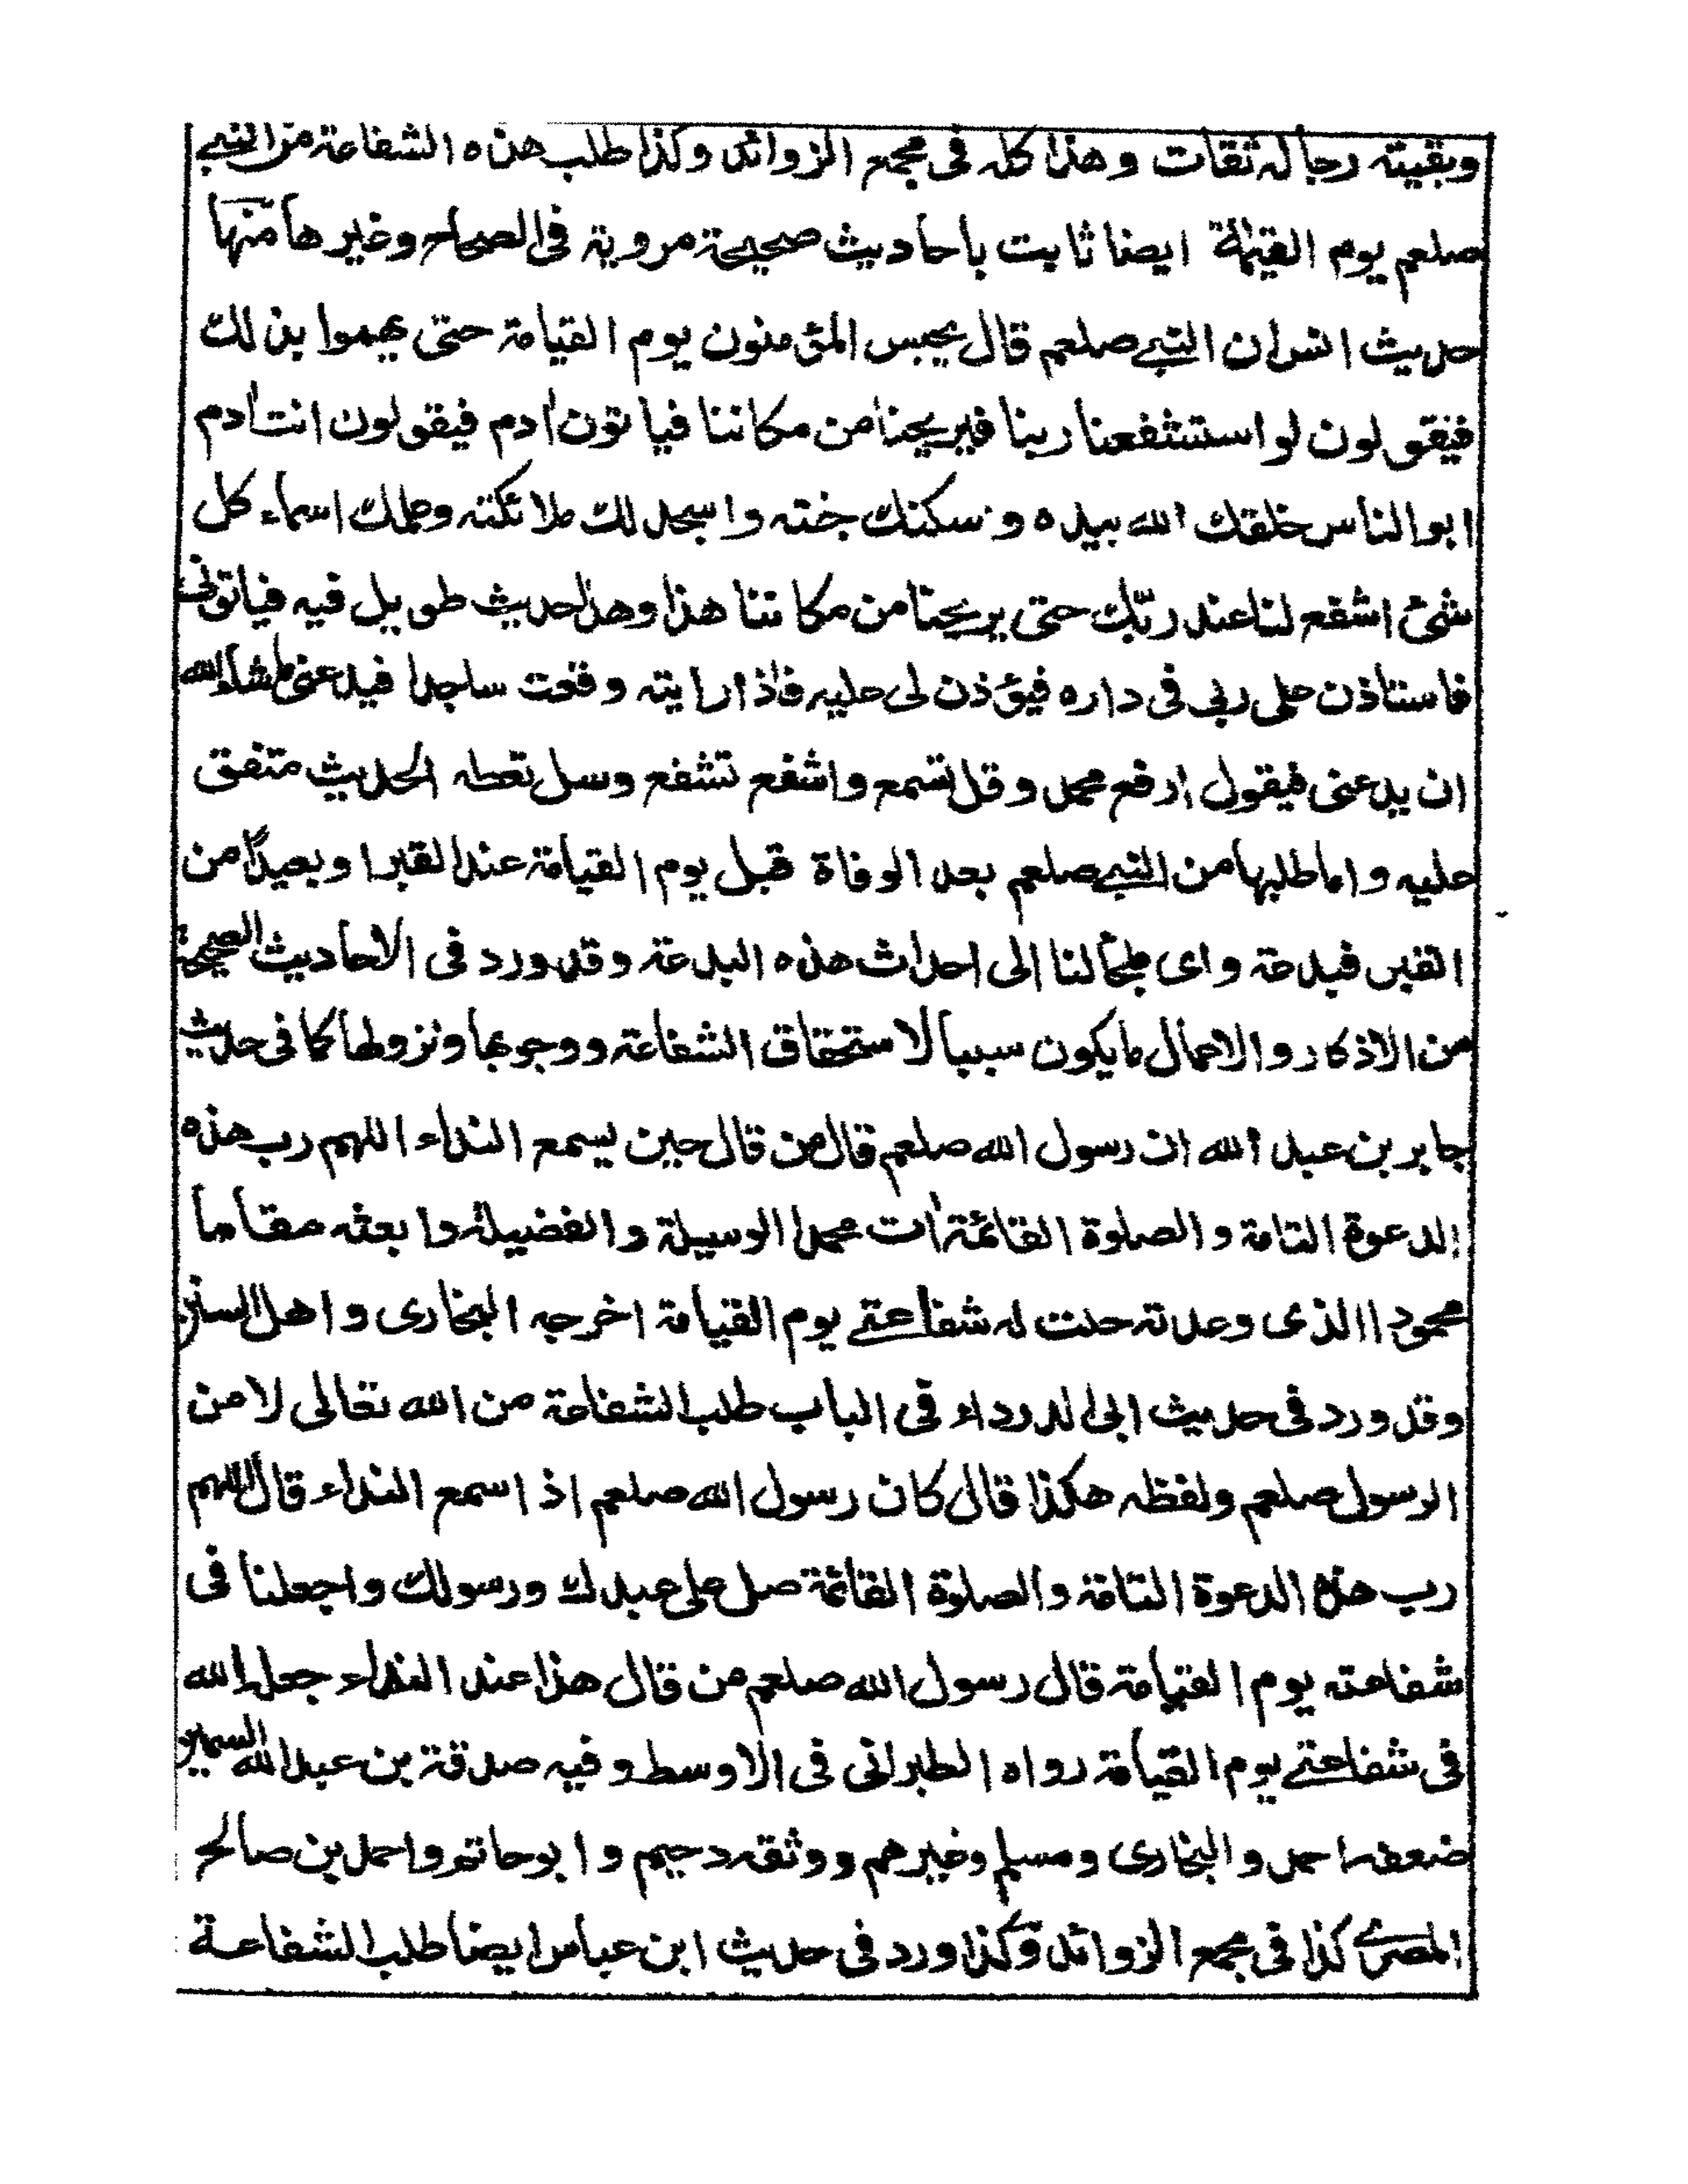 وبقيته رجاله ثقات وهذا كله فى مجمع الزوائد وكذا طلب هذه الشفاعة من النبي
صلعم يوم القيمة ايضا ثابت باحاديث صحيحة مروية فى الصحاح وغيرها منها
حديث انس ان النبي صلعم قال يحبس المؤمنون يوم القيامة حتى يهموا بذلك
فيقولون لو استشفعنا ربنا فيريحنا من مكاننا فياتون اٰدم فيقولون انت اٰدم
ابو الناس خلقك الله بيده وسكنك جنته واسجد لك ملائكته وعلمك اسماء كل
شئ اشفع لنا عند ربّك حتى يريحنا من مكاننا هذا وهذا الحديث طويل فيه فياتونى
فاستاذن على ربى فى داره فيؤذن لى عليه فاذا رايته وقعت ساجدا فيدعنى ماشاء الله
ان يدعنى فيقول ارفع محمد وقل تسمع واشفع تشفع وسل تعطه الحديث متفق
عليه واما طلبها من النبي صلعم بعد الوفاة قبل يوم القيامة عند القبر او بعيدًا من
القبر فبدعة واى ملجأ لنا الى احداث هذه البدعة وقد ورد فى الاحاديث الصحيحة
من الاذكار والاعمال مايكون سببا لاستحقاق الشفاعة ووجوبها ونزولها كما فى حديث
جابر بن عبد الله ان رسول الله صلعم قال من قال حين يسمع النداء اللهم رب هذه
الدعوة التامة والصلوة القائمة اٰت محمدا الوسيلة والفضيلة وابعثه مقاما
محمودا الذى وعدته حلت له شفاعتي يوم القيامة اخرجه البخارى واهل السنن
وقد ورد فى حديث ابى الدرداء فى الباب طلب الشفاعة من الله تعالى لا من
الرسول صلعم ولفظه هكذا قال كان رسول الله صلعم اذ اسمع النداء قال اللهم
رب هذه الدعوة التامة والصلوة القائمة صل على عبدك ورسولك واجعلنا فى
شفاعته يوم القيامة قال رسول الله صلعم من قال هذا عند النداء جعله الله
فى شفاعتي يوم القيامة رواه الطبرانى فى الاوسط وفيه صدقة بن عبد الله السمين
ضعفه احمد والبخارى ومسلم وغيرهم ووثقه دحيم وابو حاتم واحمد بن صالح
المصرى كذا فى مجمع الزوائد وكذا ورد فى حديث ابن عباس ايضا طلب الشفاعة